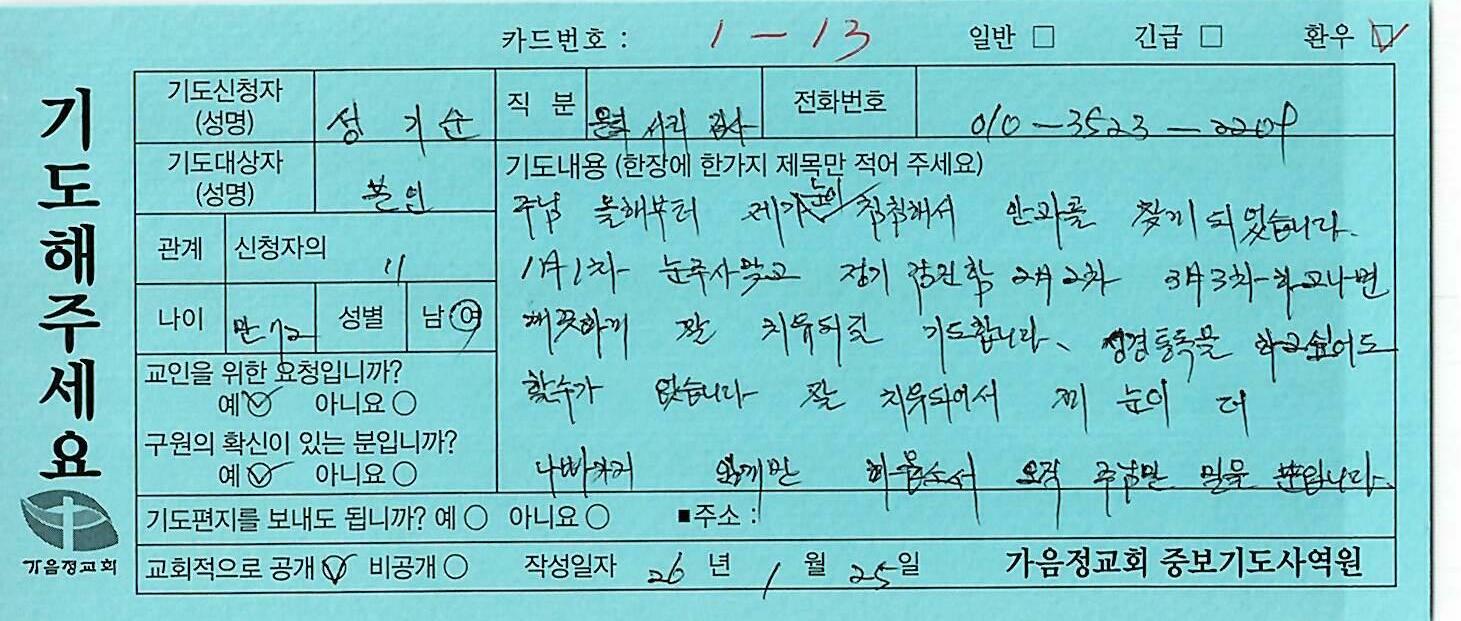 카드번호 : 1 - 13 일반 □ 긴급 □ 환우 ☑
기도해주세요
기도신청자 (성명) 성기순 직 분 은퇴 서리 집사 전화번호 010-3523-2209
기도대상자 (성명) 본인
관계 신청자의 〃
나이 만72 성별 남 여
교인을 위한 요청입니까?
예 ✓ 아니요 ○
구원의 확신이 있는 분입니까?
예 ✓ 아니요 ○
기도내용 (한장에 한가지 제목만 적어 주세요)
주님 올해부터 제가 눈이 침침해서 안과를 찾게 되었습니다.
1月 1차 눈주사맞고 정기 검진함 2月 2차 3月 3차 하고나면
깨끗하게 잘 치유되길 기도합니다. 성경통독을 하고싶어도
할수가 없습니다 잘 치유되어서 제 눈이 더
나빠지지 않게만 하옵소서 오직 주님만 믿을 뿐입니다.
기도편지를 보내도 됩니까? 예 ○ 아니요 ○ ■주소 :
교회적으로 공개 ✓ 비공개 ○ 작성일자 26 년 1 월 25 일 가음정교회 중보기도사역원
가음정교회